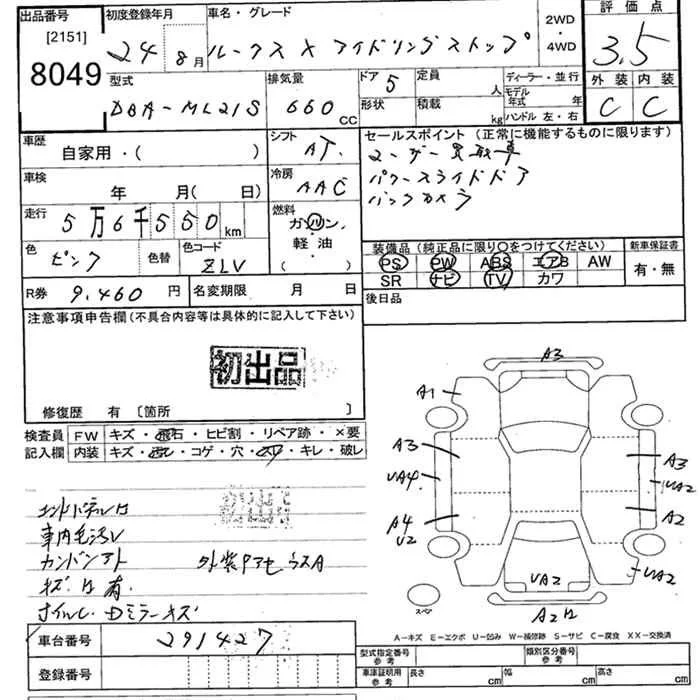 出品番号 初度登録年月 車名・グレード 2WD・4WD 評価点
[2151]
8049 24 8月 ルークス X アイドリングストップ 3.5
型式 排気量 ドア 5 定員 人 ディーラー・並行 外装 内装
DBA-ML21S 660 CC 形状 積載 kg モデル年式 年 C C
ハンドル 左・右
車歴 シフト AT セールスポイント (正常に機能するものに限ります)
自家用・( ) ユーザー買取車
車検 年 月( 日) 冷房 AAC パワースライドドア
走行 5万6千550km 燃料 ガソリン・ バックカメラ
軽油・
( )
色 ピンク 色替 色コード ZLV 装備品 (純正品に限り〇をつけてください) 新車保証書
PS PW ABS エアB AW 有・無
SR ナビ TV カワ
R券 9,460 円 名変期限 月 日 後日品
注意事項申告欄(不具合内容等は具体的に記入して下さい)
初出品
修復歴 有 [箇所 ]
検査員 FW キズ・飛石・ヒビ割・リペア跡・×要
記入欄 内装 キズ・汚レ・コゲ・穴・スレ・キレ・破レ
A3
A1
A3 A3
UA4 UA2
A4 A2
U2
UA2 UA2
スペア
A2
エンドパネルU
車内毛汚レ
キズ 有
ホイル・Dミラーキズ
A-キズ E-エクボ U-凹み W-補修跡 S-サビ C-腐食 XX-交換済
車台番号 291427
登録番号
型式指定番号 参考 類別区分番号 参考
車庫証明用 参考 長さ cm 幅 cm 高さ cm